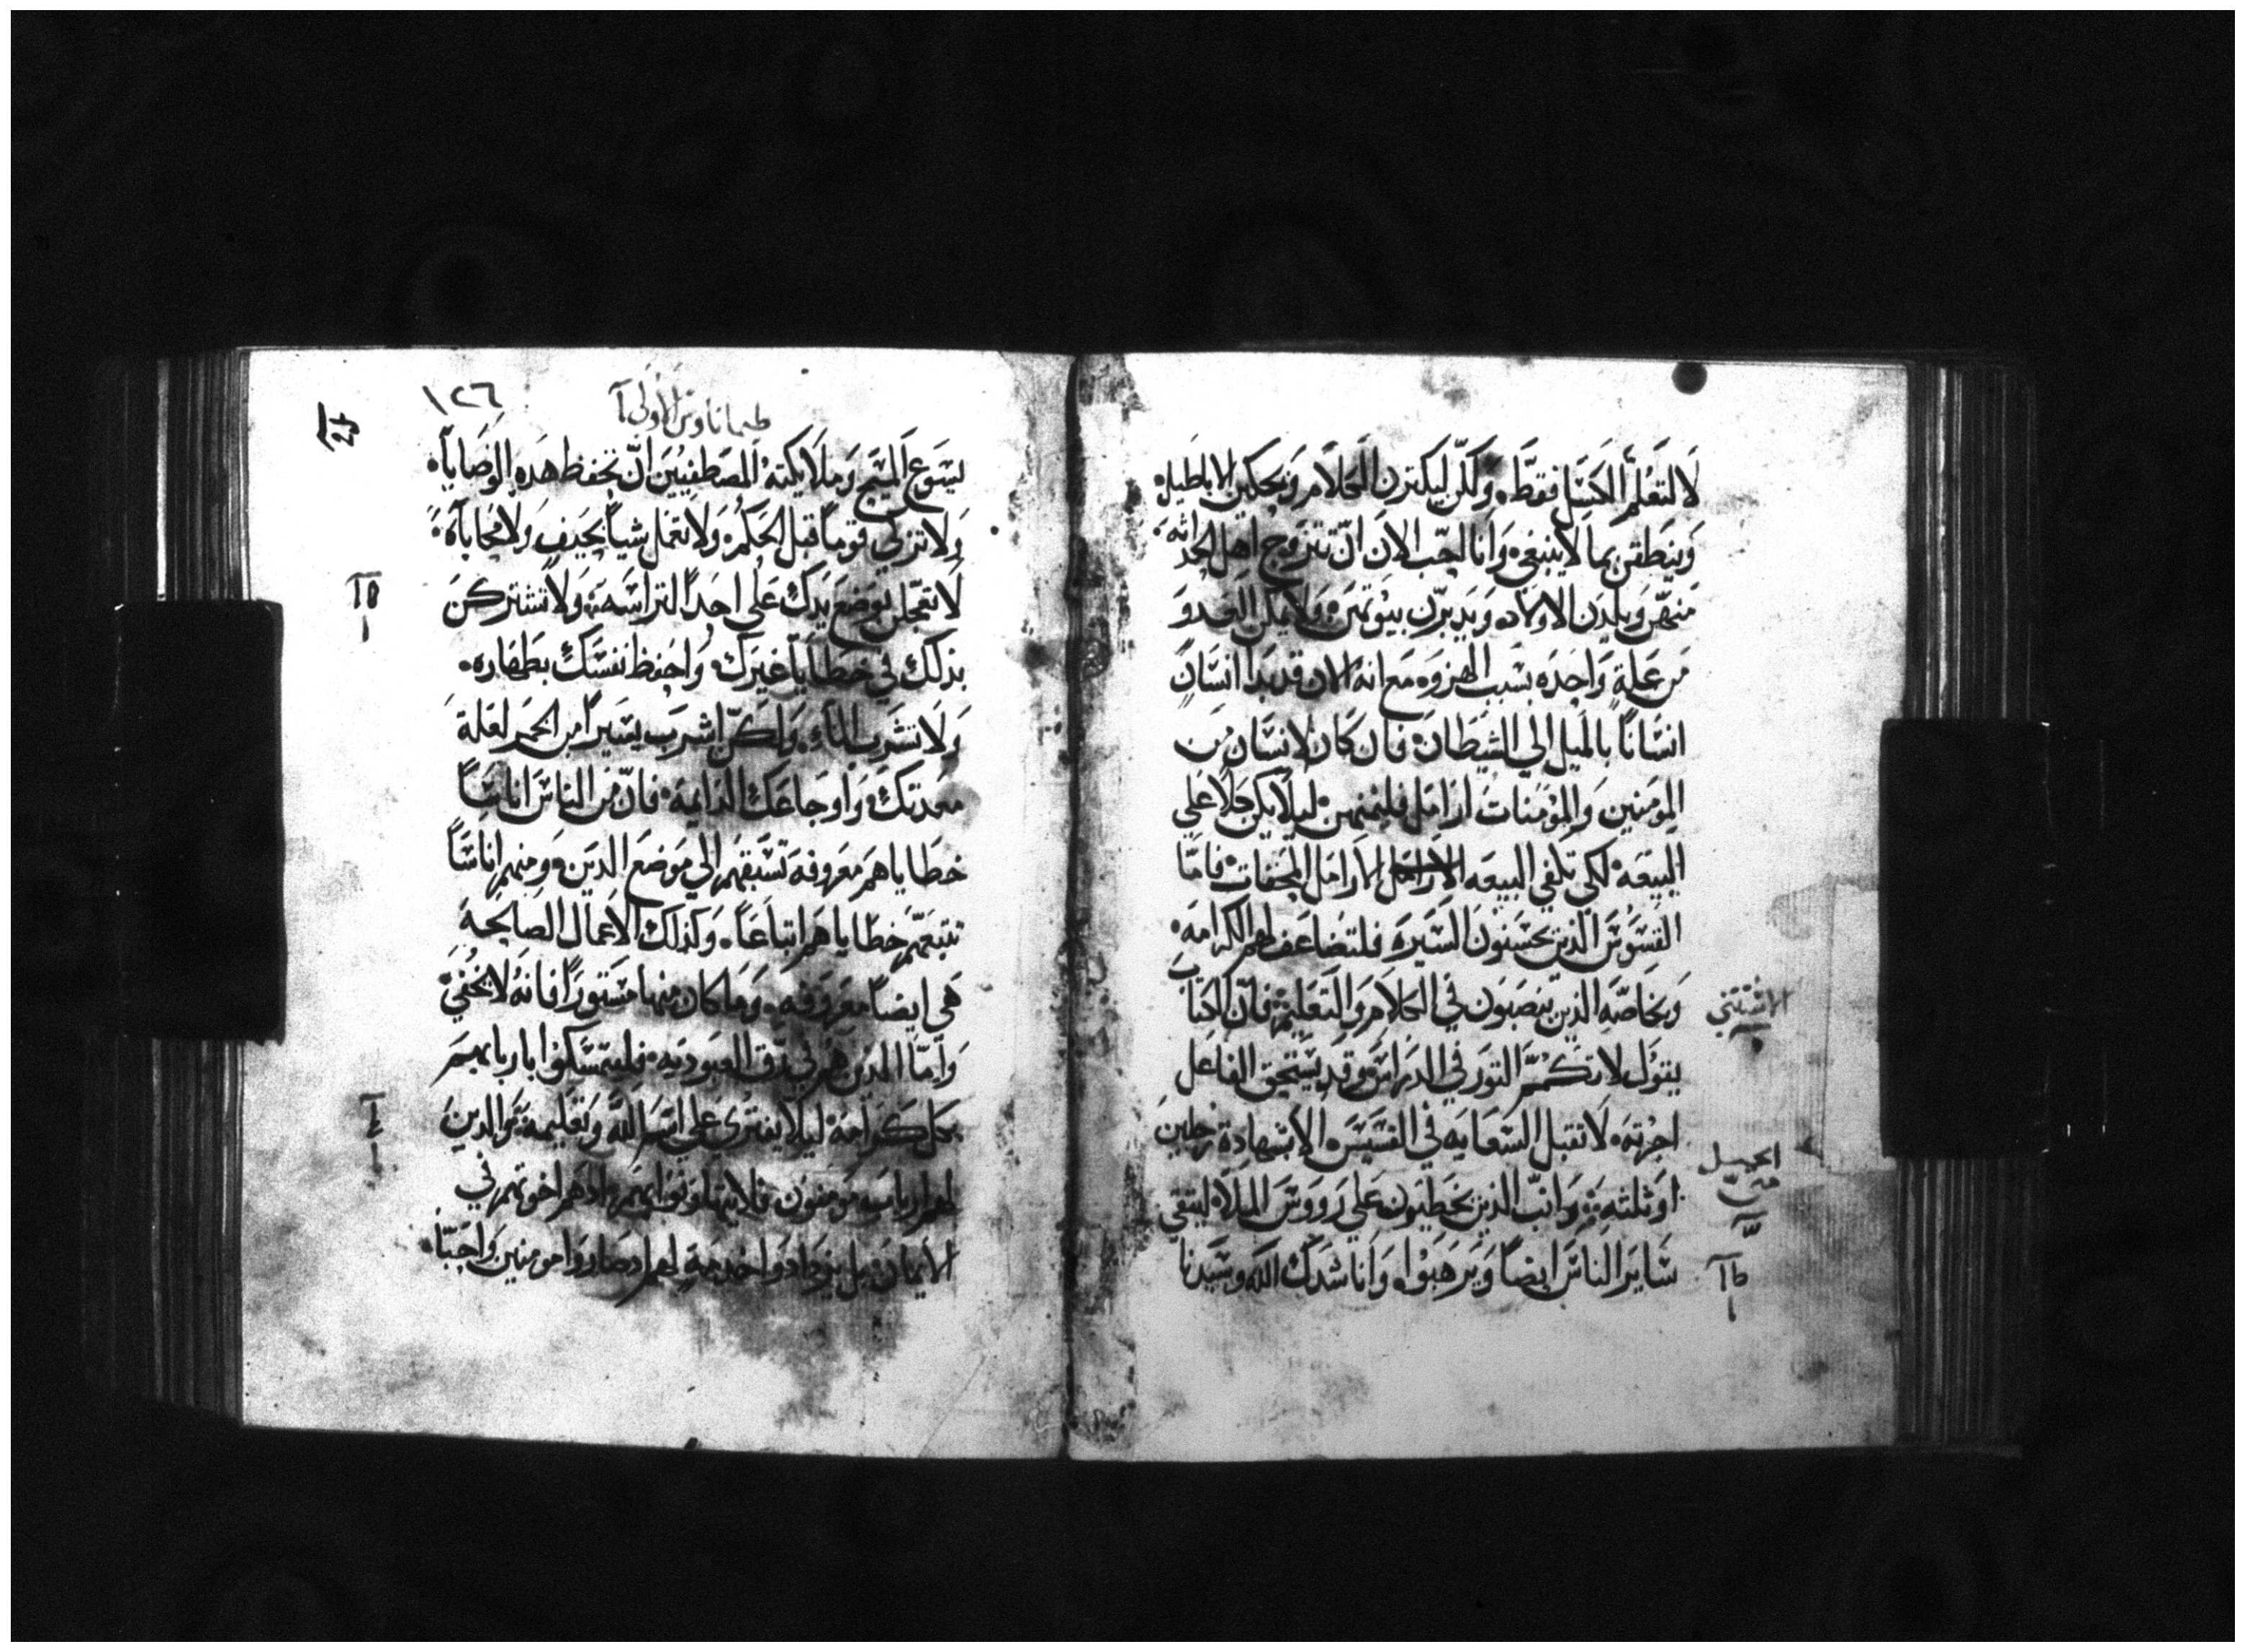 لا لتعلم الكسل فقط. ولكن ليكترن الكلام ويحكين الاباطيل.
وينطقن بما لا ينبغي. وانا احب الان ان تتزوج اهل الحداثه.
منهن ويلدن الاولاد. ويدبرن بيوتهن. ولا يمكن العدو
من علة واحده بسبب الهزوه مع انه الان قد بدا انسان
انسانا بالميل الي الشيطان. فان كان لانسان من
المومنين والمؤمنات ارامل فليمنهن. ليلا يكن كلا علي
البيعه. لكي تلفي البيعه الارامل المحقات. فاما
القسوس الذين يحسنون السيره فلتضاعف لهم الكرامه.
وبخاصه الذين ينصبون في الكلام والتعليم. فان الكتاب
يتول لا تكمم التور في الدراس. وقد يستحق الفاعل
اجرته. لا تقبل السعايه في القسيس الا بشهادة رجلين
او ثلثه. وانب الذين يخطيون علي رووس الملاه ليتقي
ساير الناس ايضا ويرهبوا. واناشدك الله وسيدنا
الاستثني
انجيل
متي
طآ
١٢٦
طيماتاوس الاولي آ
يسوع المسيح وملايكته المصطفيين ان تحفظ هده الوصايا.
ولا تزكي قوما قبل الحكم. ولا تعمل شيا بحيف ولا محاباة.
لا تعجلن بوضع يدك علي احد التراسه. ولا تشتركن
بذلك في خطايا غيرك. واحفظ نفسك بطهاره.
ولا تشرب الماء. ولكن اشرب يسيرا من الخمر لعلة
معدتك. واوجاعك الدايمه. فان من الناس اناسا
خطاياهم معروفه تسبقهم الي موضع الدين. ومنهم اناسا
تتبعهم خطاياهم اتباعا. وكذلك الاعمال الصالحه
هي ايضا معروفه. وما كان منها مستورا فانه لا يخفي.
واما الدين هم في رق العبوديه. فليتمسكوا باربابهم
بكل كرامه ليلا يفتري علي اسم الله وتعليمه. والدين
لهم ارباب مومنون. فلا يتهاونوا بهم. اد هم اخوتهم في
الايمان. بل يزدادوا خدمة لهم اد صاروا مومنين واحبا.